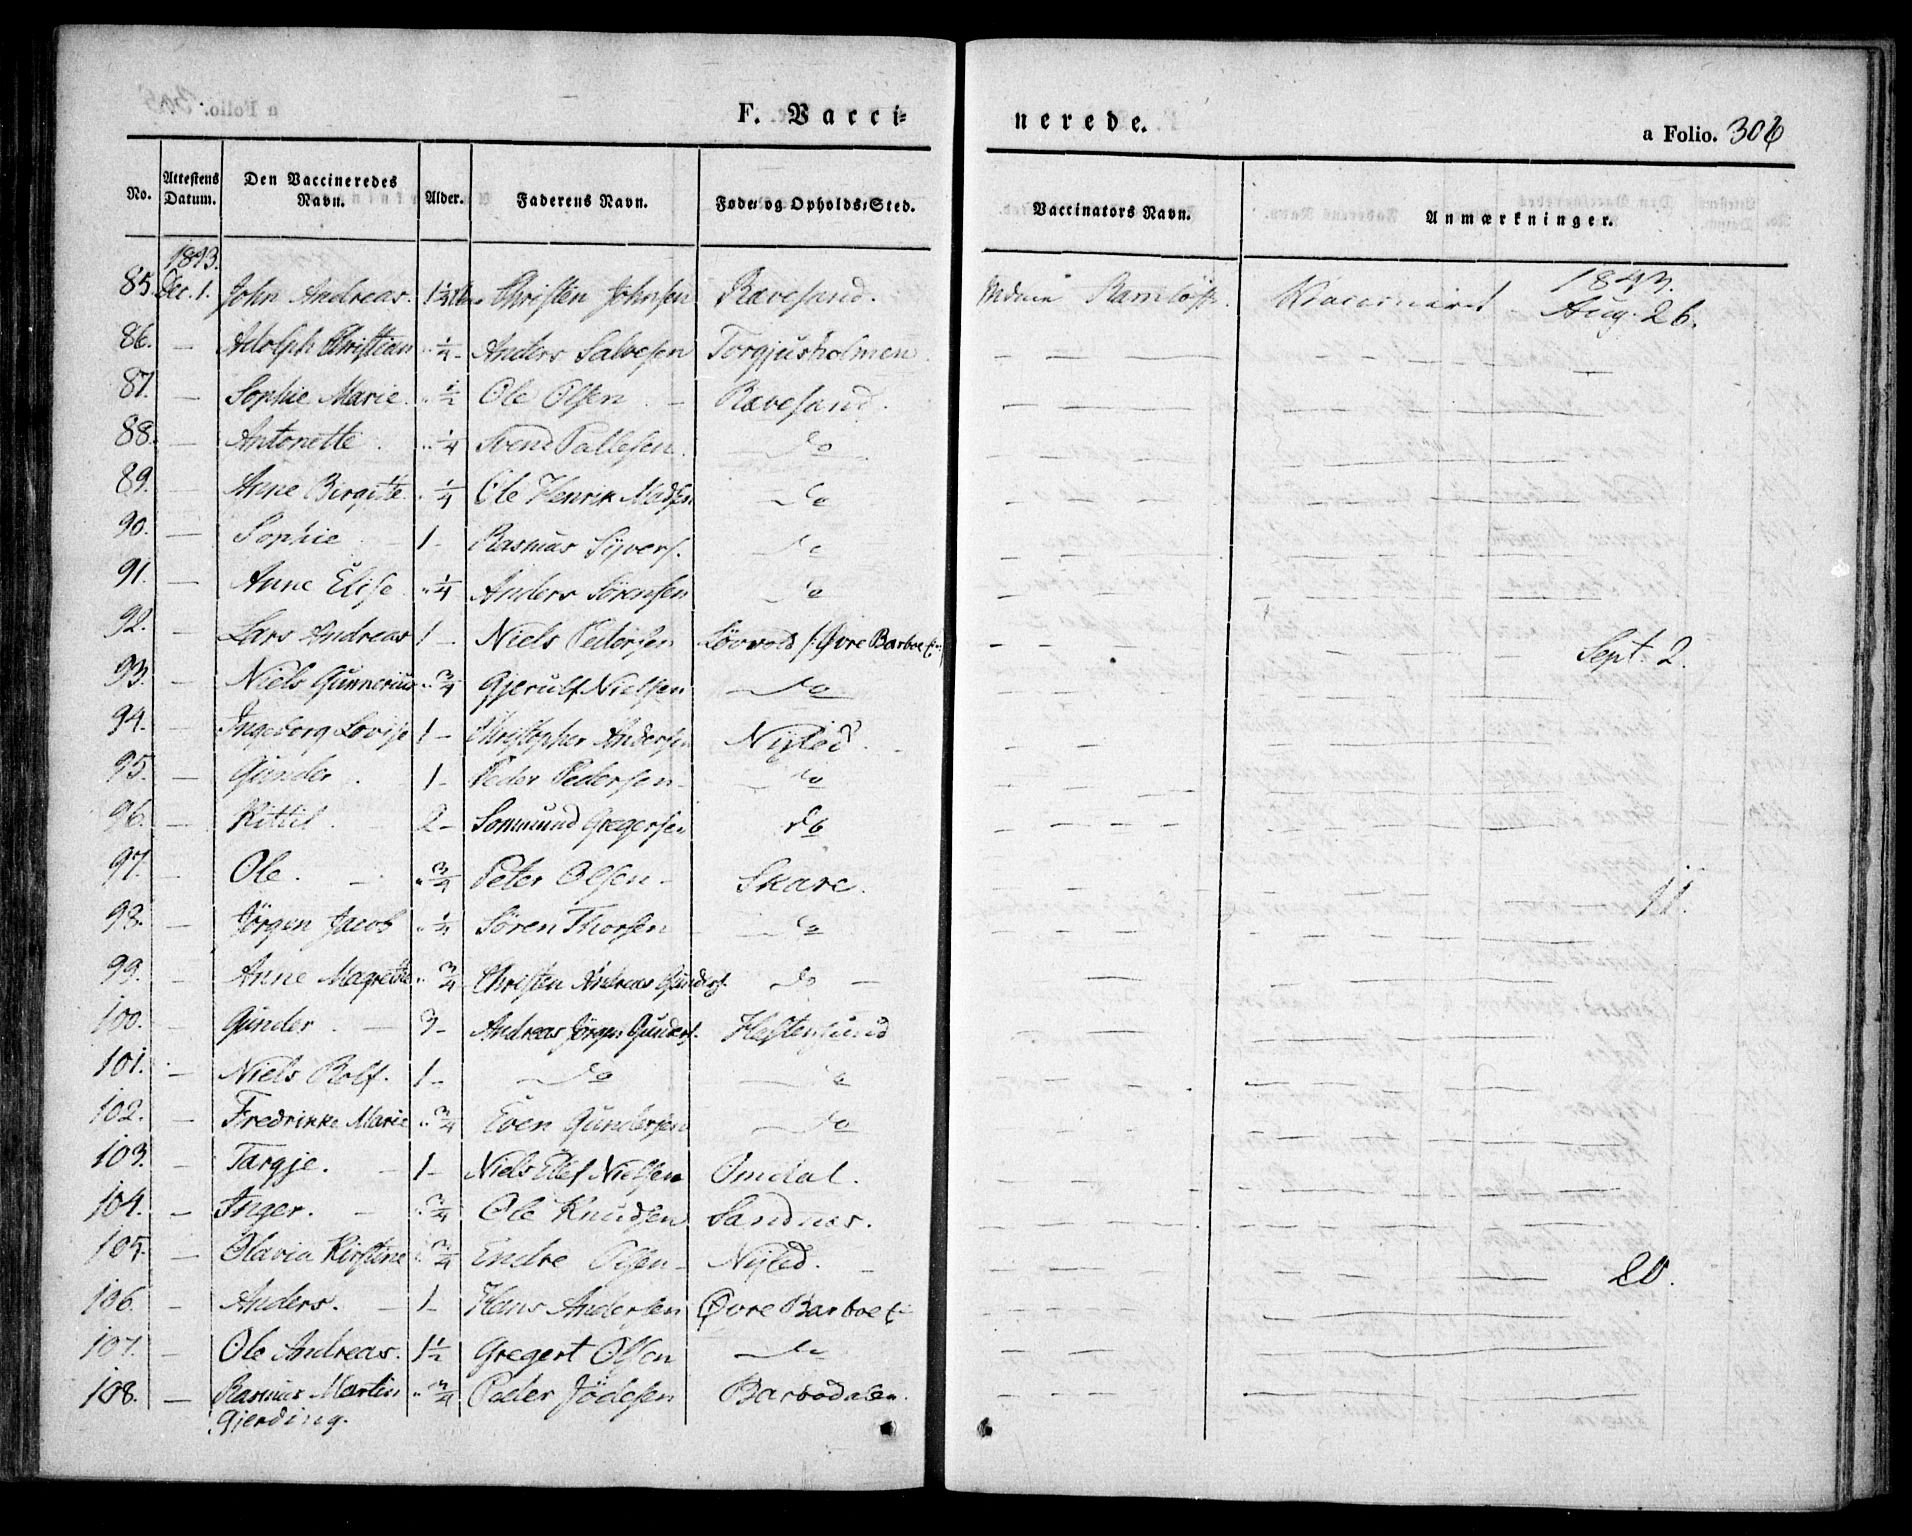 F. Vacci-
nerede.
a Folio. 306
No.
Attestens Datum.
Den Vaccineredes Navn.
Alder.
Faderens Navn.
Føde- og Opholds-Sted.
Vaccinators Navn.
Anmærkninger.
1843. 1843.
85. Dec. 1. John Andreas. Christen Johnsen Ravesand. Aug. 26.
86. — Adolph Christian „ 1/4 - Anders Salvesen Torgjusholmen — — — —
87. — Sophie Marie. „ 1/2 Ole Olsen - Ravesand. — — — —
88. — Antonette. „ 1/4 Svend Pallesen. do — — — —
89. — Anne Birgitte „ 1/4 Ole Henrik Madsen do — — — —
90. — Sophie - 1 - Rasmus Syvers. do — — — —
91. — Anne Elise „ 1/4 Anders Sörensen do — — — —
92. — Lars Andreas 1 - Niels Pedersen Øvre Barboe — — — — Sept. 2.
93. — Niels Gunnerius „ 3/4 Gjerulf Nielsen do — — — —
94. — Ingeborg Lovise 1 - Christopher Andersen Nyled. — — — —
95. — Gunder. 1 - Peder Pedersen - do — — — —
96. — Kittil. - 2 - Sommund Gregersen do — — — —
97. — Ole. - „ 3/4 Peter Olsen - Skare. — — — — 11.
98. — Jörgen Jacob „ 1/4 Sören Thorsen do — — — —
99. — Anne Magrethe „ 3/4 Christen Andreas Gunders. do — — — —
100. — Gunder. - 3 - Andreas Jörgen Gunders. Hestesund — — — —
101. — Niels Rolf. 1 - do do — — — —
102. — Fredrikke Marie „ 3/4 Even Gundersen do — — — —
103. — Targje. - 1 - Niels Ellef Nielsen Omdal. — — — —
104. — Inger. - „ 3/4 Ole Knudsen Sandnes. — — — —
105. — Olavia Kirstine „ 3/4 Endre Olsen - Nyled. — — — — 20.
106. — Anders. - 1 - Hans Andersen Øvre Barboe — — — —
107. — Ole Andreas. 1 1/2 Gregert Olsen do — — — —
108. — Rasmus Martin „ 3/4 Peder Jödesen Barbodalen. — — — —
Gjerding.